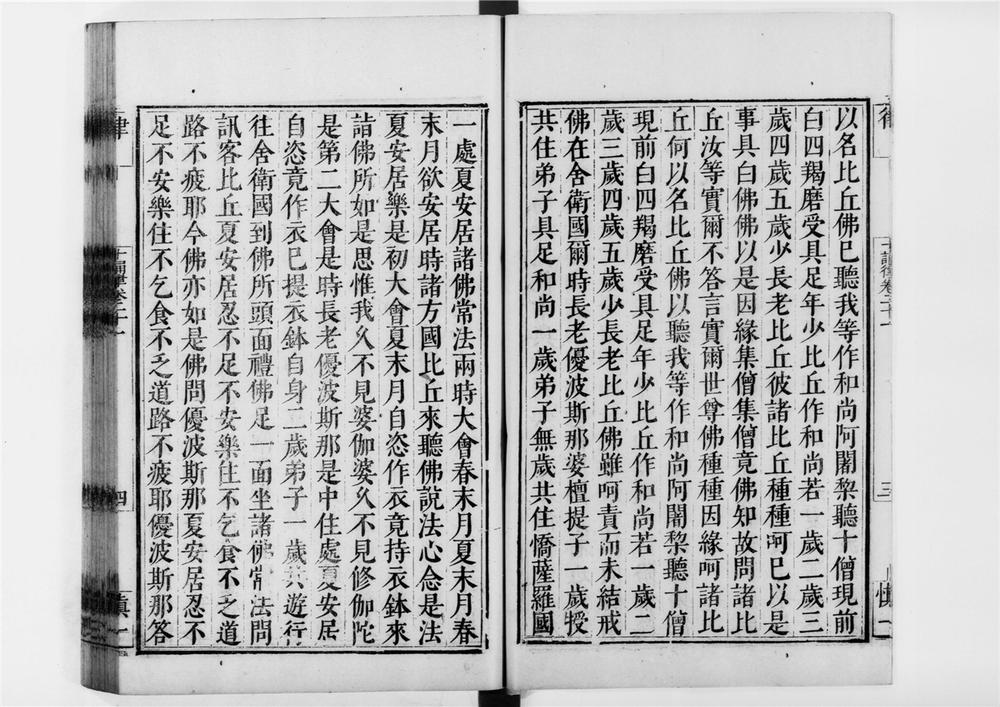 以名比丘佛已聽我等作和尚阿闍黎聽十僧現前
白四羯磨受具足年少比丘作和尚若一歲二歲三
歲四歲五歲少長老比丘彼諸比丘種種呵已以是
事具白佛佛以是因緣集僧集僧竟佛知故問諸比
丘汝等實爾不答言實爾世尊佛種種因緣呵諸比
丘何以名比丘佛以聽我等作和尚阿闍黎聽十僧
現前白四羯磨受具足年少比丘作和尚若一歲二
歲三歲四歲五歲少長老比丘佛雖呵責而未結戒
佛在舍衛國爾時長老優波斯那婆檀提子一歲授
共住弟子具足和尚一歲弟子無歲共住憍薩羅國
十誦律卷二十一
三
一處夏安居諸佛常法兩時大會春末月夏末月春
末月欲安居時諸方國比丘來聽佛說法心念是法
夏安居樂是初大會夏末月自恣作衣竟持衣鉢來
詣佛所如是思惟我久不見婆伽婆久不見修伽陀
是第二大會是時長老優波斯那是中住處夏安居
自恣竟作衣已提衣鉢自身二歲弟子一歲共遊行
往舍衛國到佛所頭面禮佛足一面坐諸佛常法問
訊客比丘夏安居忍不足不安樂住不乞食不乏道
路不疲耶今佛亦如是佛問優波斯那夏安居忍不
足不安樂住不乞食不乏道路不疲耶優波斯那答
律
十誦律卷二十一
四